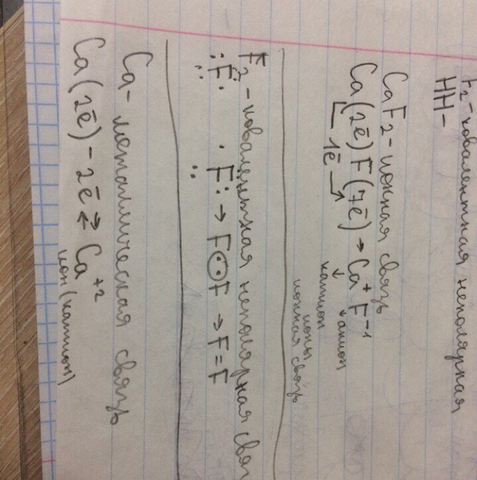 F₂-ковалентная неполярная
HH-
CaF₂-ионная связь
Ca(2ē)F(7ē)→Ca + F⁻¹
1ē
катион
анион
ионы
ионная связь
F₂-ковалентная неполярная связ
:F· ·F: → F:F → F=F
Ca-металлическая связь
Ca(2ē)-2ē ⇄ Ca⁺²
ион (катион)